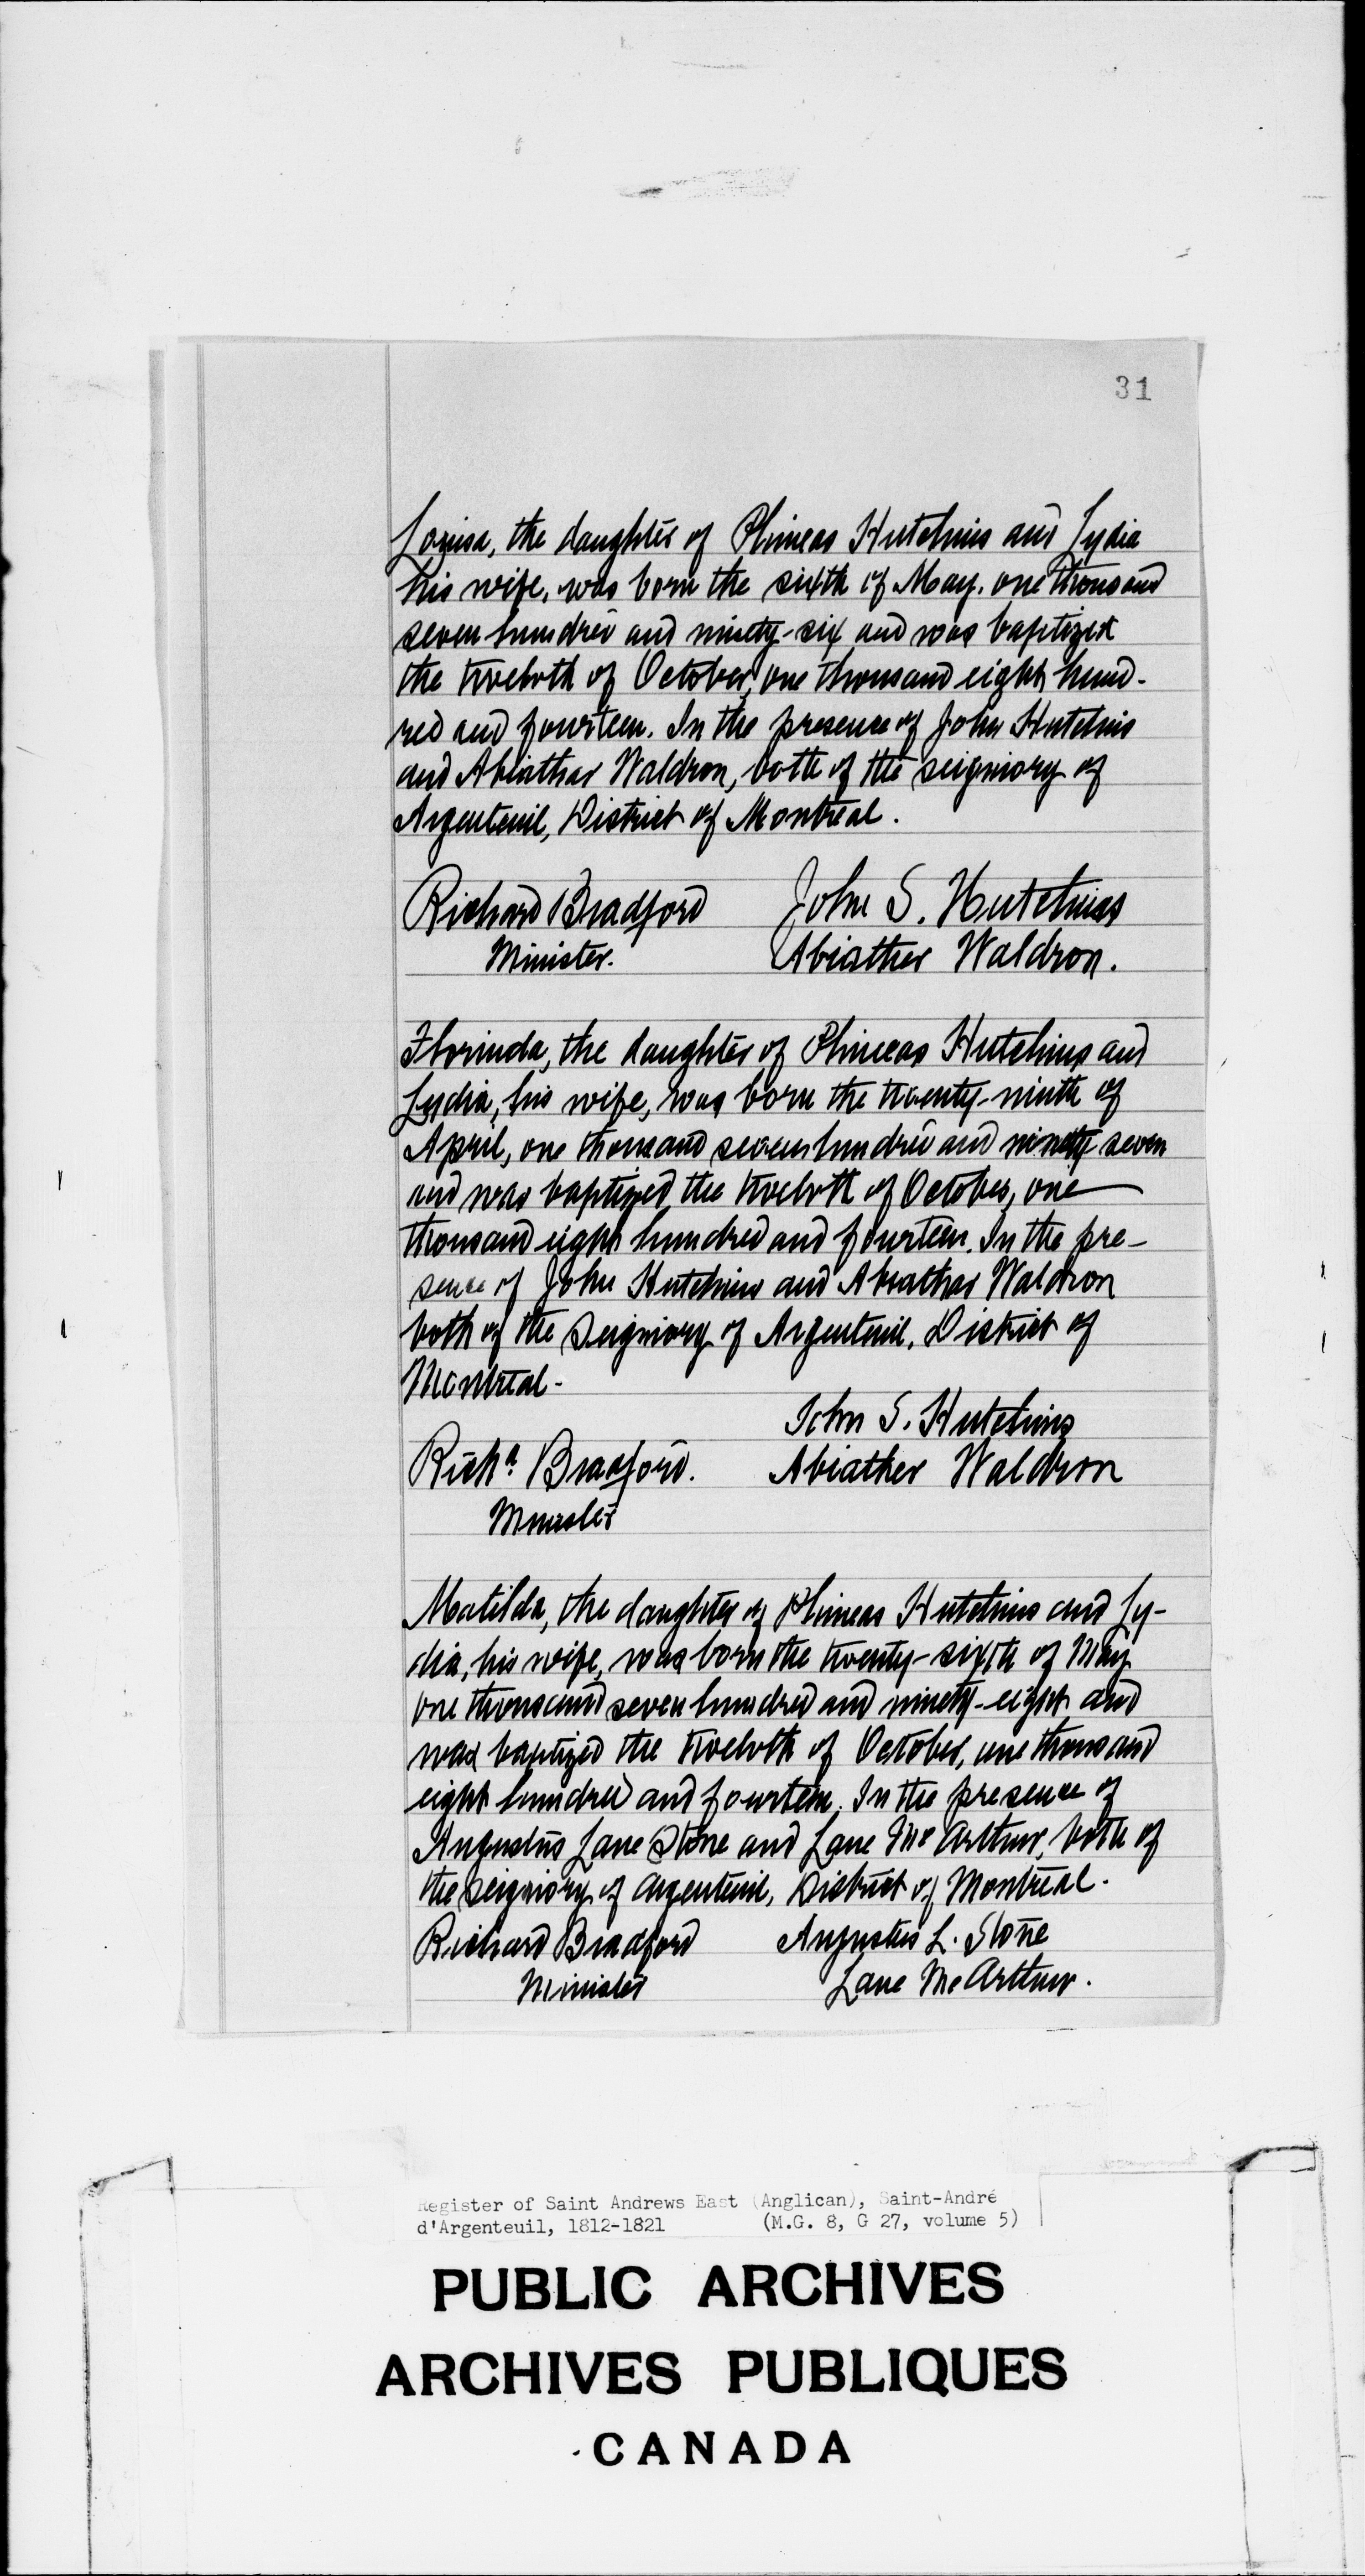 31
Louisa, the daughter of Phineas Hutchins and Lydia
his wife, was born the sixth of May, one thousand
seven hundred and ninety-six and was baptized
the twelvth of October, one thousand eight hund-
red and fourteen. In the presence of John Hutchins
and Abiathar Waldron, both of the seigniory of
Argenteuil, District of Montreal.
Richard Bradford John S. Hutchins
Minister. Abiather Waldron.
Florinda, the daughter of Phineas Hutchins and
Lydia, his wife, was born the twenty-ninth of
April, one thousand seven hundred and ninety seven
and was baptized the twelvth of October, one
thousand eight hundred and fourteen. In the pre-
sence of John Hutchins and Abiathar Waldron
both of the Seigniory of Argenteuil, District of
Montreal-
John S. Hutchins
Richd. Bradford. Abiather Waldron
Minister
Matilda, the daughter of Phineas Hutchins and Ly-
dia, his wife, was born the twenty-sixth of May
one thousand seven hundred and ninety-eight and
was baptized the twelvth of October, one thousand
eight hundred and fourteen. In the presence of
Augustus Lane Stone and Lane Mc Arthur, both of
the Seigniory of Argenteuil, District of Montreal.
Richard Bradford Augustus L. Stone
Minister Lane Mc Arthur.
Register of Saint Andrews East (Anglican), Saint-André
d'Argenteuil, 1812-1821 (M.G. 8, G 27, volume 5)
PUBLIC ARCHIVES
ARCHIVES PUBLIQUES
CANADA